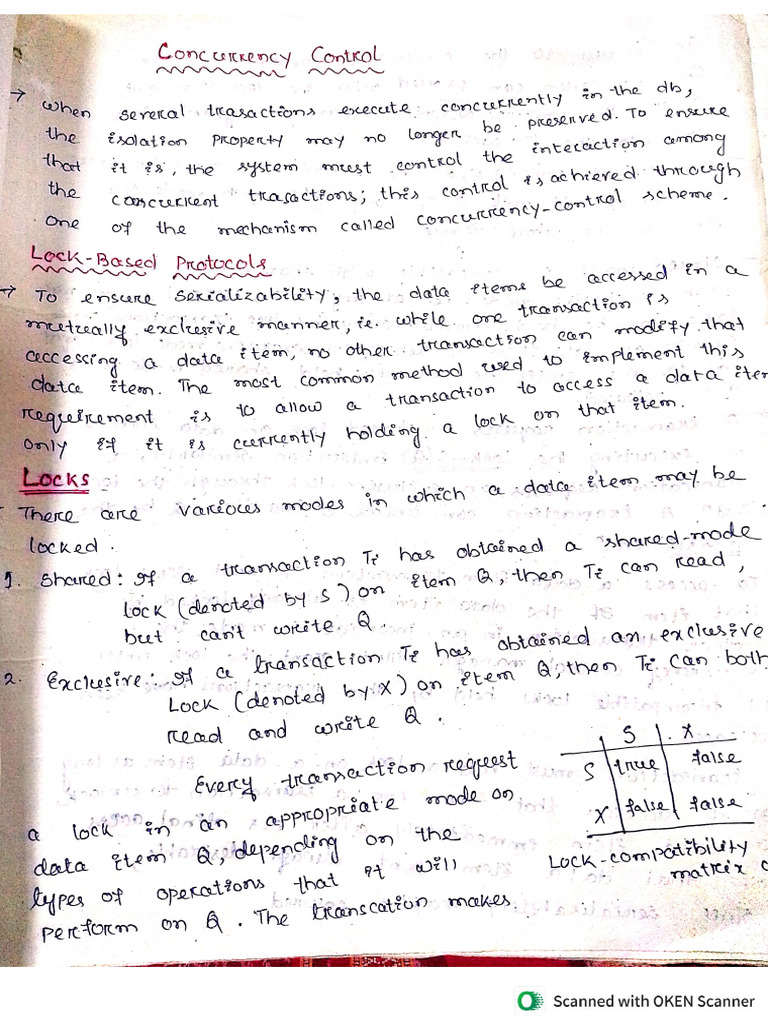 Concurrency Control
→ When several trasactions execute concurrently in the db,
the isolation property may no longer be preserved. To ensure
that it is, the system must control the interaction among
the concurrent trasactions; this control is achieved through
one of the mechanism called concurrency-control scheme.
Lock-Based Protocols
→ To ensure serializability, the data items be accessed in a
mutually exclusive manner, i.e. while one transaction is
accessing a data item, no other transaction can modify that
data item. The most common method used to implement this
requirement is to allow a transaction to access a data item
only if it is currently holding a lock on that item.
Locks
There are various modes in which a data item may be
locked.
1. Shared: If a transaction Ti has obtained a shared-mode
lock (denoted by S) on item Q, then Ti can read,
but can't write Q.
2. Exclusive: If a transaction Ti has obtained an exclusive
Lock (denoted by X) on item Q, then Ti can both
read and write Q.
S X
S true false
X false false
Lock-compatibility
matrix
Every transaction request
a lock in an appropriate mode on
data item Q, depending on the
types of operations that it will
perform on Q. The transcation makes
Scanned with OKEN Scanner